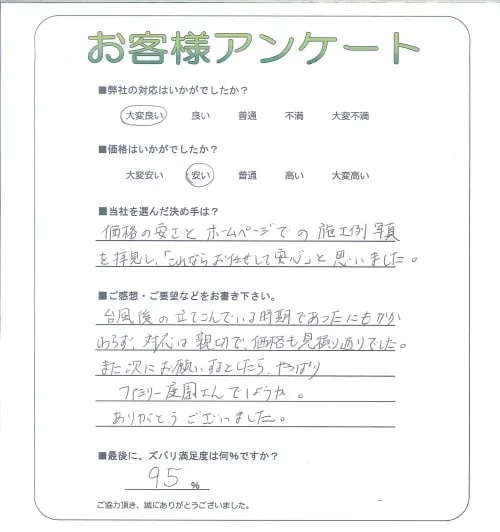 お客様アンケート
■弊社の対応はいかがでしたか？
大変良い 良い 普通 不満 大変不満
■価格はいかがでしたか？
大変安い 安い 普通 高い 大変高い
■当社を選んだ決め手は？
価格の安さと ホームページでの 施工例写真
を拝見し、「これならお任せして安心」と思いました。
■ご感想・ご要望などをお書き下さい。
台風後の立てこんでいる時期であったにもかか
わらず、対応は親切で、価格も見積り通りでした。
また次にお願いするとしたら、やっぱり
ファミリー庭園さんでしょうか。
ありがとうございました。
■最後に、ズバリ満足度は何%ですか？
95 %
ご協力頂き、誠にありがとうございました。